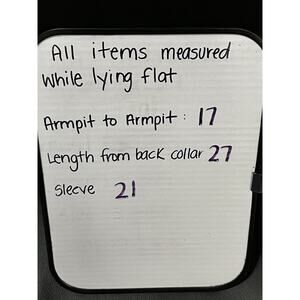 All items measured
while lying flat
Armpit to Armpit : 17
Length from back collar 27
Sleeve 21